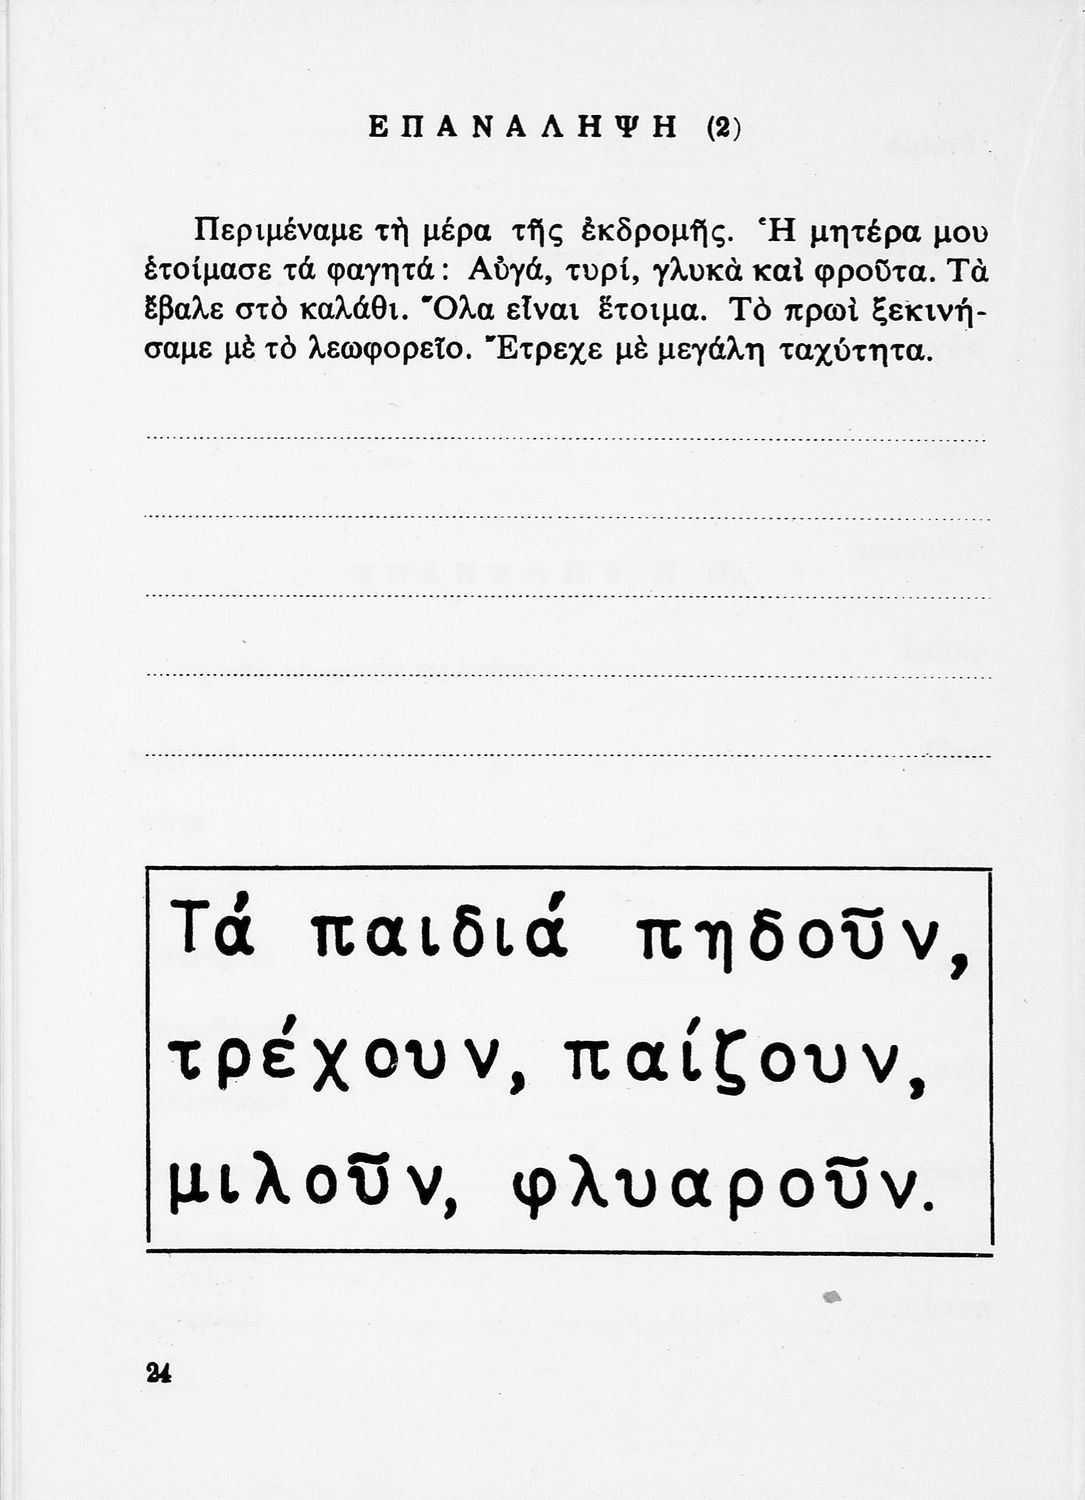 ΕΠΑΝΑΛΗΨΗ (2)
Περιμέναμε τὴ μέρα τῆς ἐκδρομῆς. Ἡ μητέρα μου
ἑτοίμασε τά φαγητά: Αὐγά, τυρί, γλυκὰ καὶ φροῦτα. Τὰ
ἔβαλε στὸ καλάθι. Ὅλα εἶναι ἕτοιμα. Τὸ πρωὶ ξεκινή-
σαμε μὲ τὸ λεωφορεῖο. Ἔτρεχε μὲ μεγάλη ταχύτητα.
Τά παιδιά πηδοῦν,
τρέχουν, παίζουν,
μιλοῦν, φλυαροῦν.
24